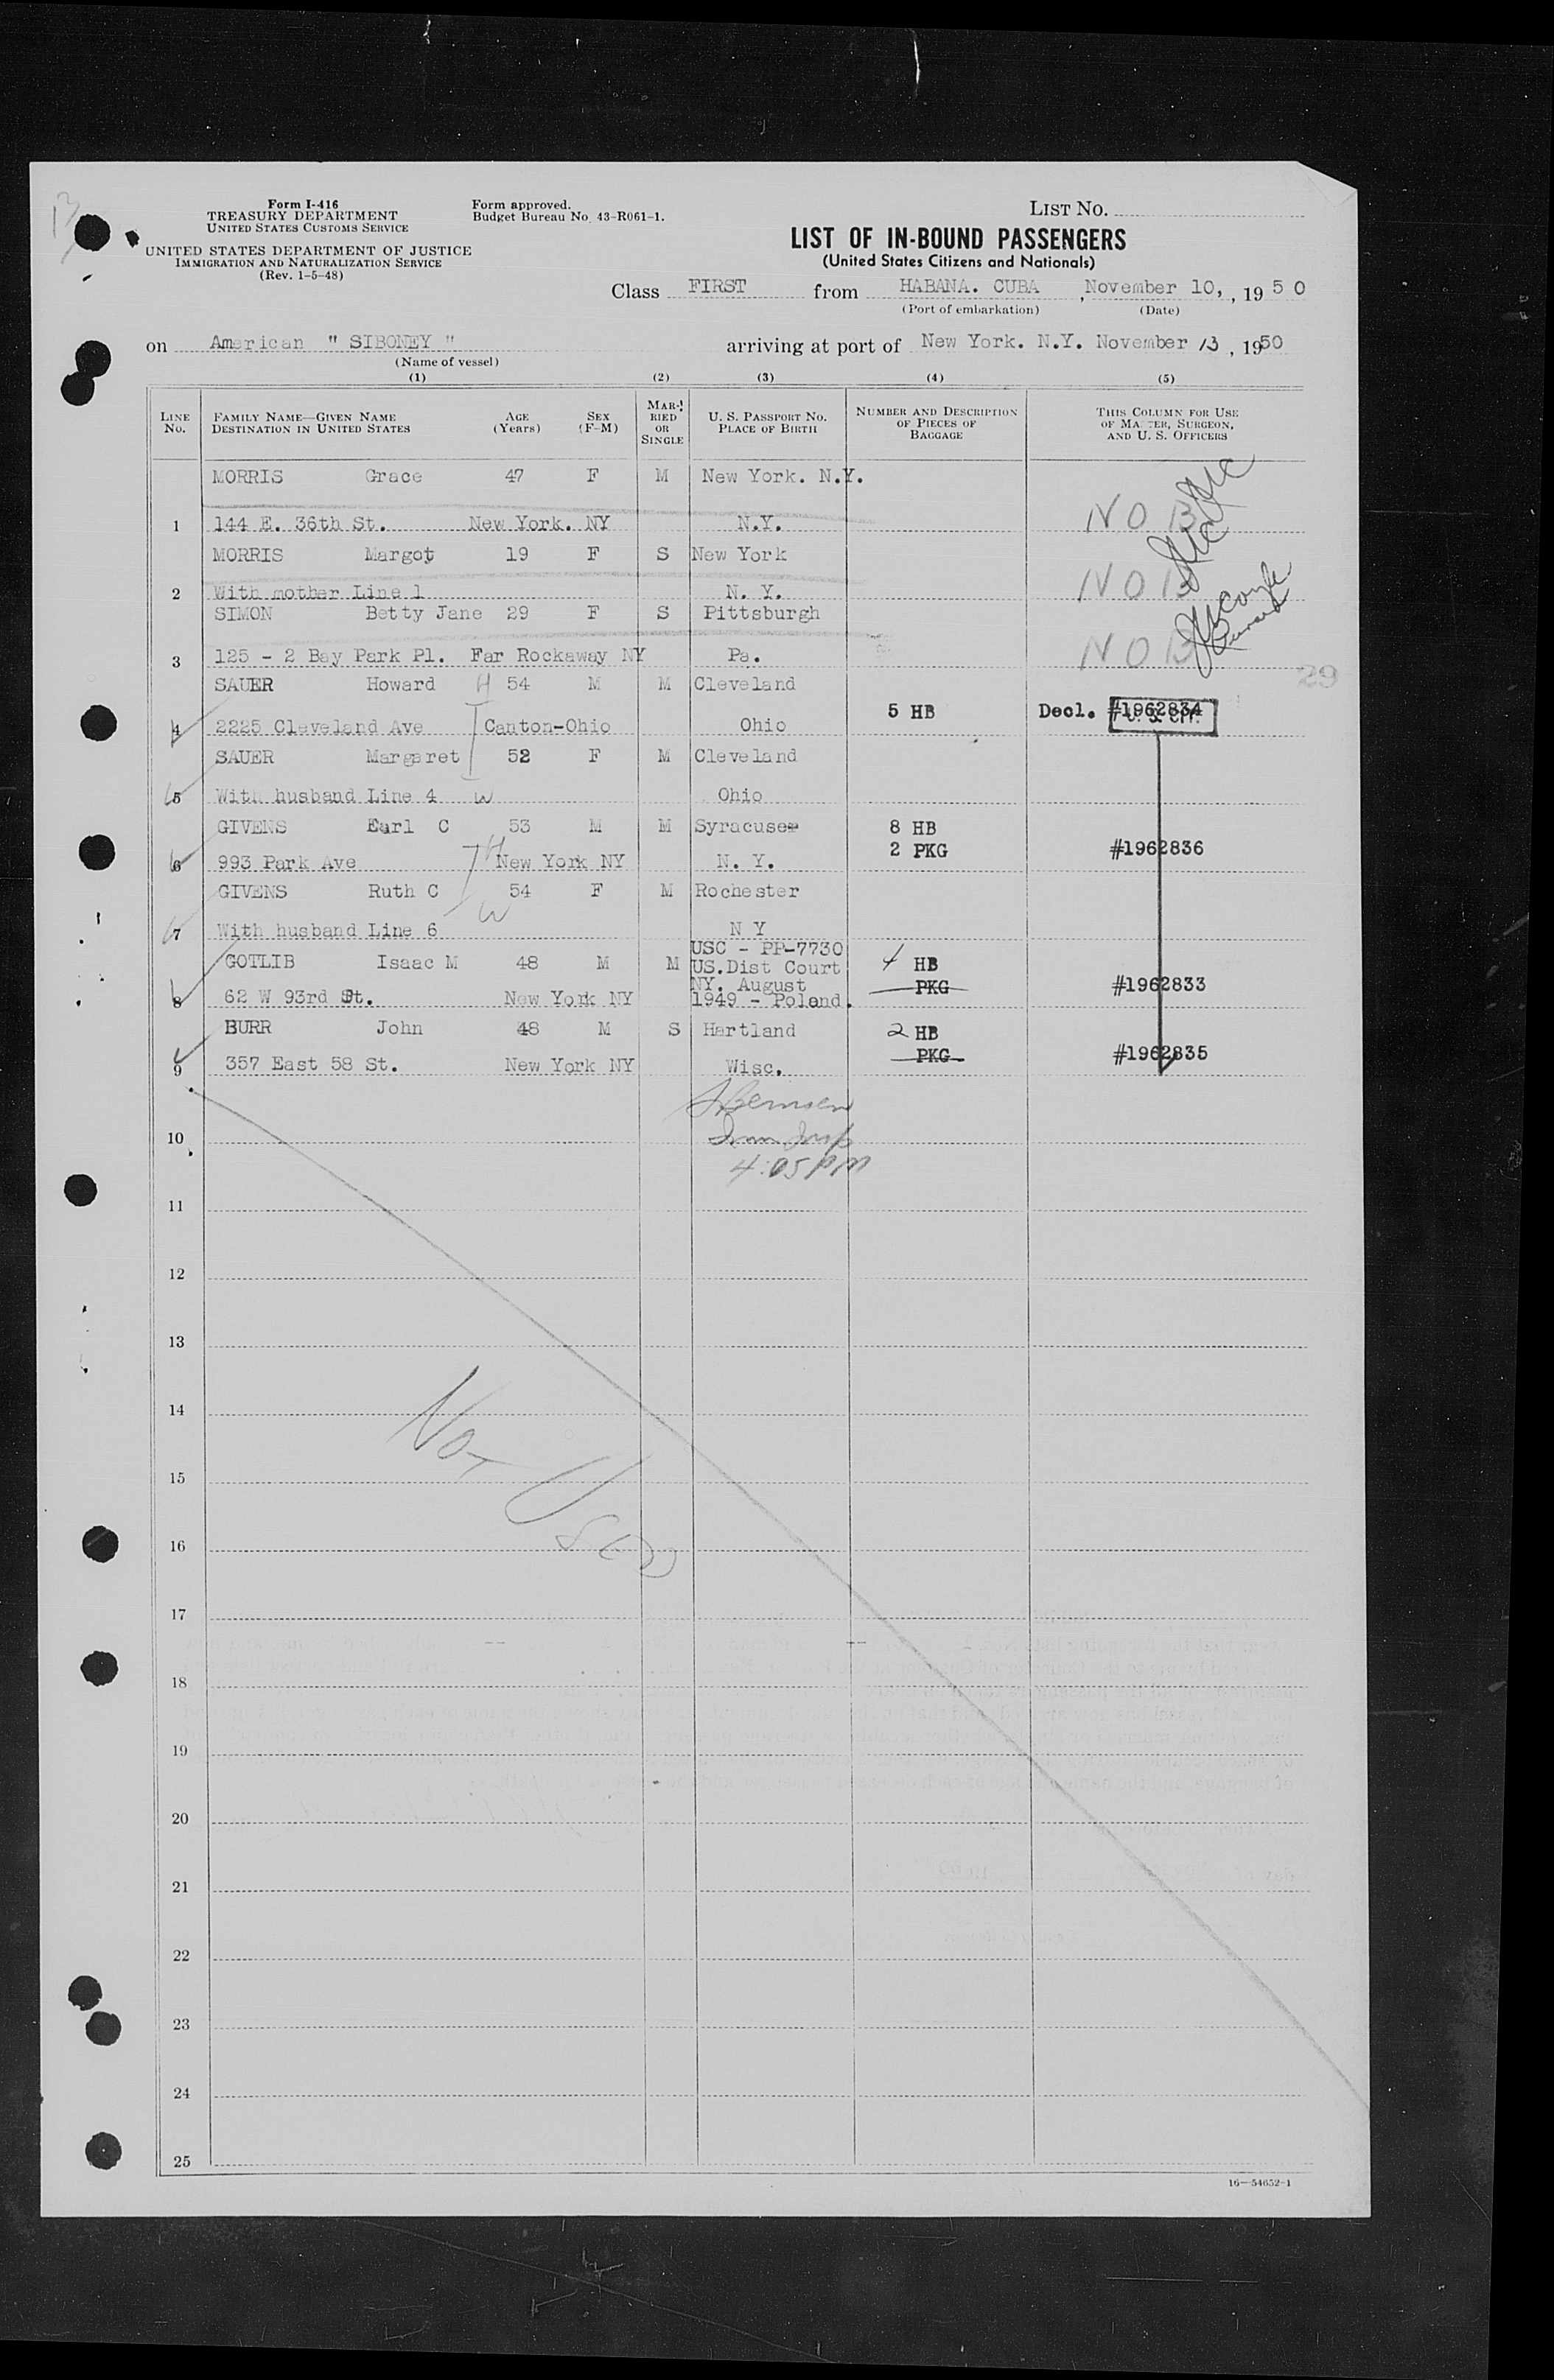 13
Form I-416
TREASURY DEPARTMENT
UNITED STATES CUSTOMS SERVICE
UNITED STATES DEPARTMENT OF JUSTICE
IMMIGRATION AND NATURALIZATION SERVICE
(Rev. 1-5-48)
Form approved.
Budget Bureau No. 43-R061-1.
LIST NO.
LIST OF IN-BOUND PASSENGERS
(United States Citizens and Nationals)
Class FIRST from HABANA. CUBA , November 10, , 19 5 0
(Port of embarkation) (Date)
on American " SIBONEY " arriving at port of New York. N.Y. November 13 , 1950
(Name of vessel)
(1) (2) (3) (4) (5)
LINE No. FAMILY NAME—GIVEN NAME DESTINATION IN UNITED STATES AGE (Years) SEX (F-M) MARRIED OR SINGLE U. S. PASSPORT NO. PLACE OF BIRTH NUMBER AND DESCRIPTION OF PIECES OF BAGGAGE THIS COLUMN FOR USE OF MASTER, SURGEON, AND U. S. OFFICERS
MORRIS Grace 47 F M New York. N.Y.
1 144 E. 36th St. New York. NY N.Y. NOB
MORRIS Margot 19 F S New York
2 With mother Line 1 N. Y. NOB
SIMON Betty Jane 29 F S Pittsburgh
3 125 - 2 Bay Park Pl. Far Rockaway NY Pa. NOB
29
SAUER Howard H 54 M M Cleveland
5 HB Decl. #1962834
4 2225 Cleveland Ave Canton-Ohio Ohio U. S. CIT.
SAUER Margaret 52 F M Cleveland
5 With husband Line 4 W Ohio
GIVENS Earl C 53 M M Syracuse 8 HB
2 PKG #1962836
6 993 Park Ave H New York NY N. Y.
GIVENS Ruth C 54 F M Rochester
W
7 With husband Line 6 N Y
USC - PP-7730
GOTLIB Isaac M 48 M M US.Dist Court 4 HB
NY. August PKG #1962833
8 62 W 93rd St. New York NY 1949 - Poland.
BURR John 48 M S Hartland 2 HB
PKG #1962835
9 357 East 58 St. New York NY Wisc.
Imm Insp
10
4:05 PM
11
12
13
14
NOT USED
15
16
17
18
19
20
21
22
23
24
25
16—54652-1